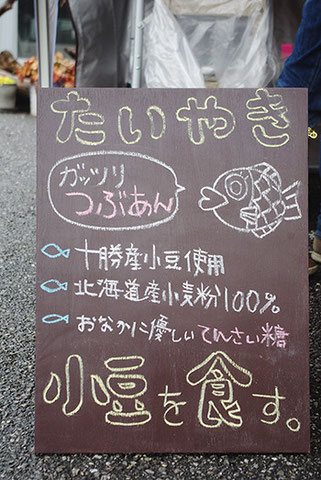 たいやき
ガッツリ
つぶあん
十勝産小豆使用
北海道産小麦粉100%
おなかに優しいてんさい糖
小豆を食す。